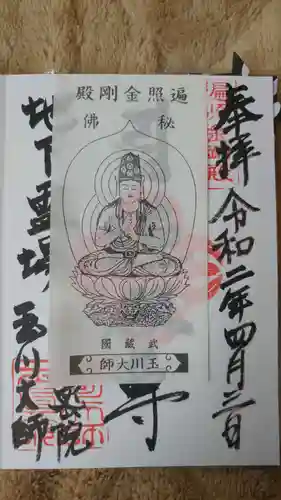 奉拝
令和二年四月二日
遍照金剛殿
秘佛
武蔵國
玉川大師
寺
地下霊場
玉川大師
奥院